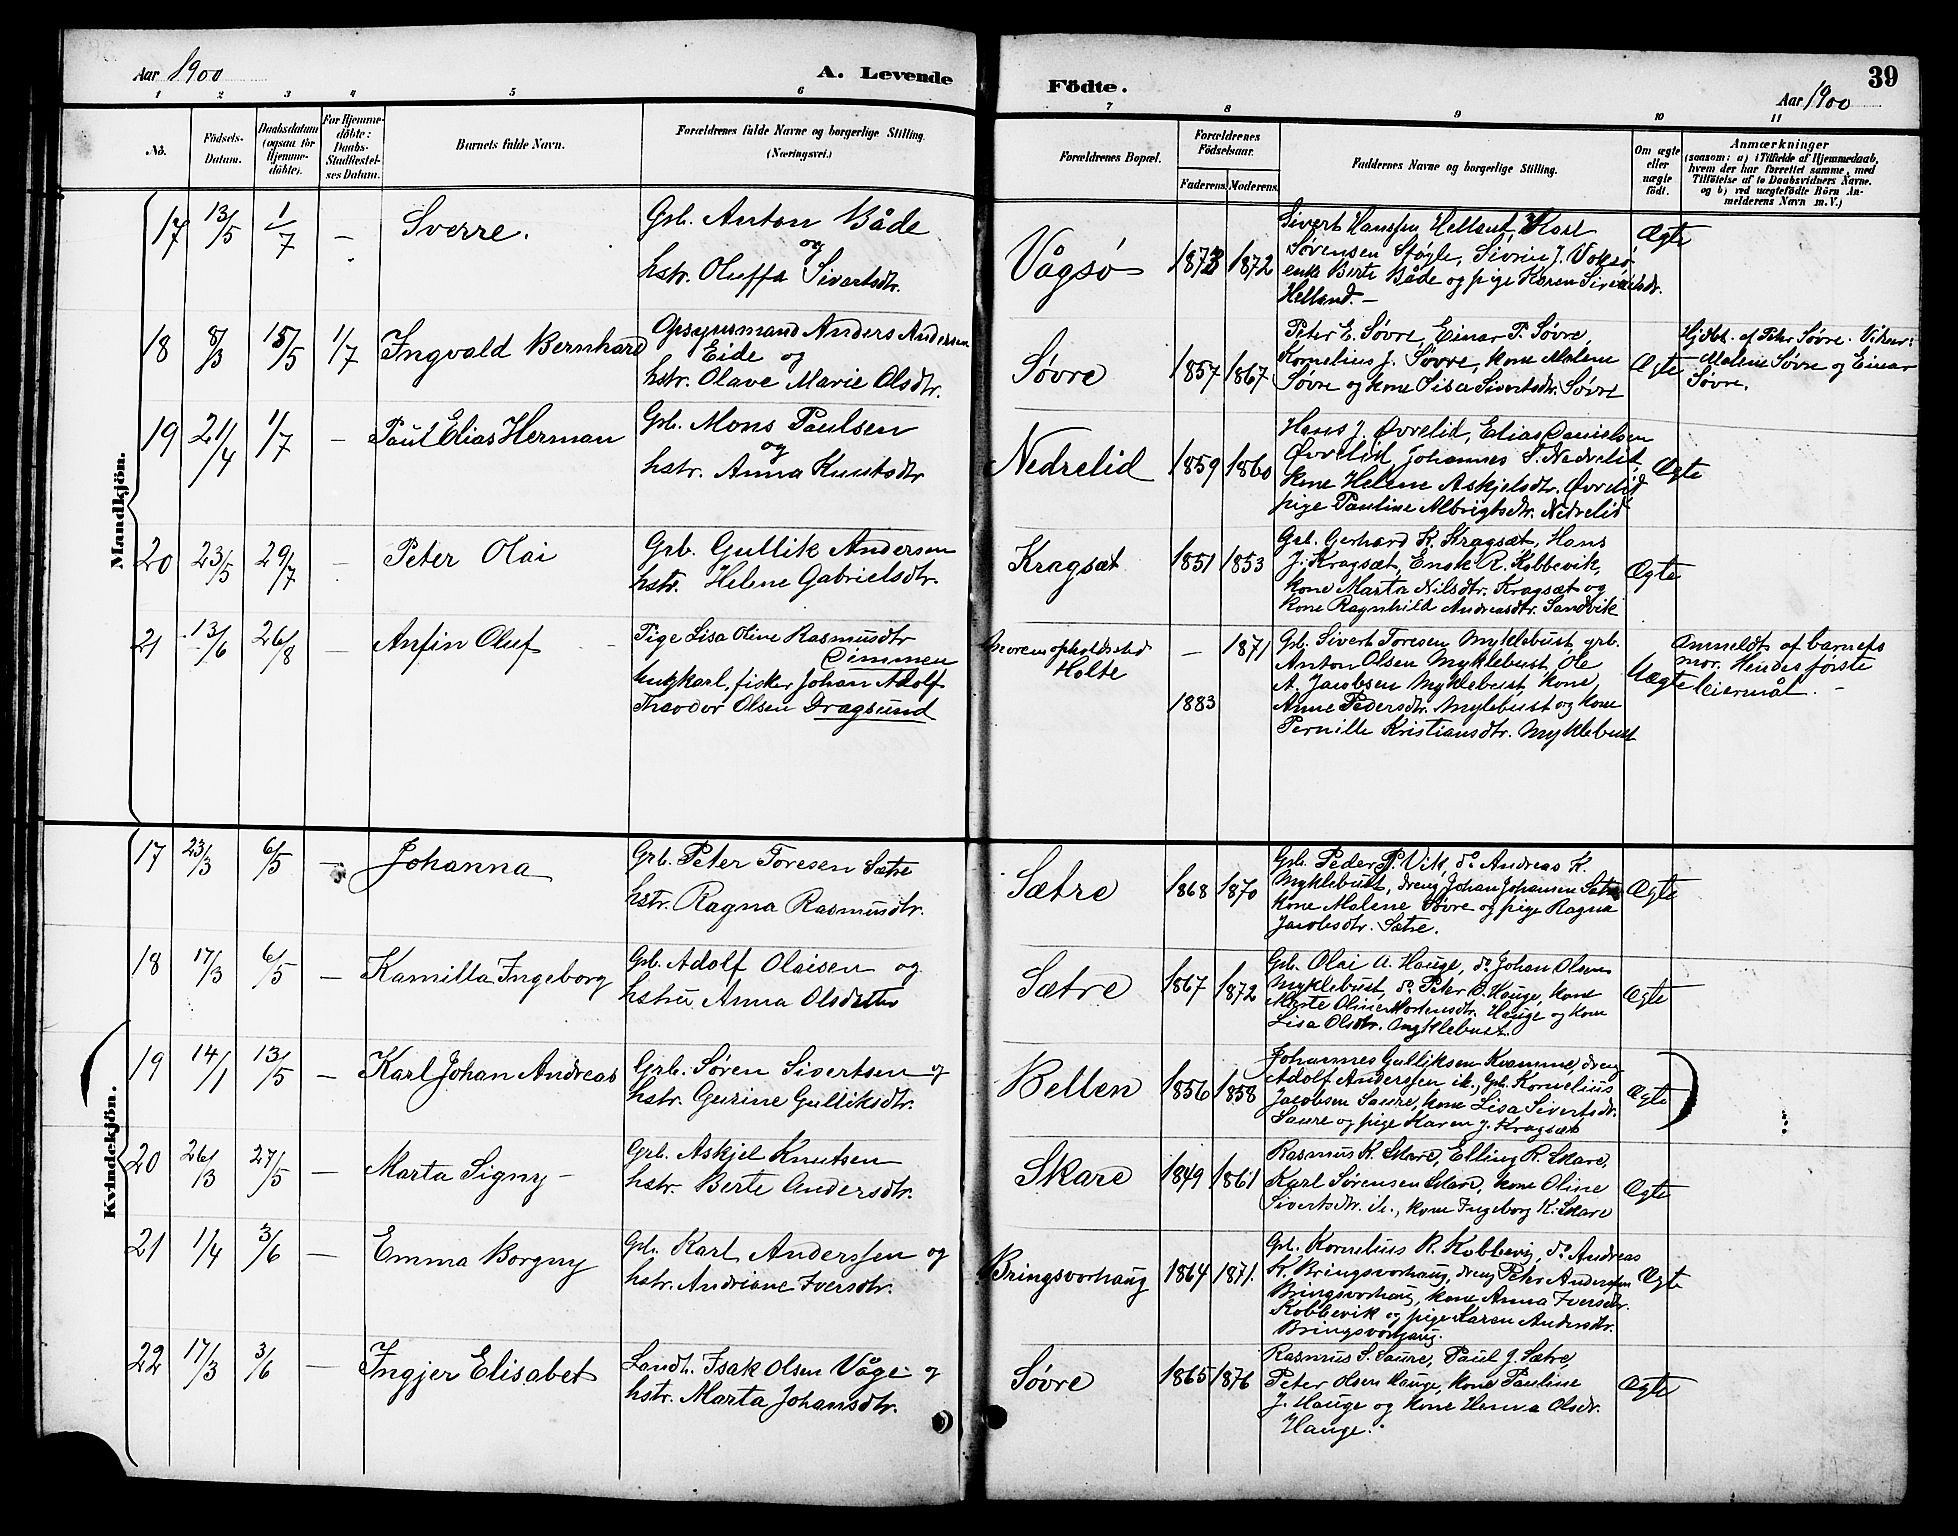 Aar 1900
A. Levende
Födte.
39
Aar 1900
1 2 3 4 5 6 7 8 9 10 11
No.
Födsels-
Datum.
Daabsdatum
(ogsaa for
Hjemme-
døbte).
For Hjemme-
døbte:
Daabs-
Stadfæstel-
ses Datum.
Barnets fulde Navn.
Forældrenes fulde Navne og borgerlige Stilling.
(Næringsvei.)
Forældrenes Bopæl.
Forældrenes
Födselsaar.
Faderens. Moderens.
Faddernes Navne og borgerlige Stilling.
Om ægte
eller
uægte
født.
Anmærkninger
(saasom: a) i Tilfælde af Hjemmedaab,
hvem der har forrettet samme, med
Tilføielse af to Daabsvidners Navne.
og b) ved uægtefödte Börn An-
melderens Navn m.V.)
Mandkjön.
17 13/5 1/7 — Sverre.
Grb. Anton Både
og
hstr. Oluffa Sivertsdtr.
Vågsø 1873 1872
Sivert Hanssen Helland, Karl
Sørensen Støyle, Sivrin J. Voksø,
enke Berte Både og pige Karen Sivertsdtr.
Helland. —
Ægte
18 8/3 15/5 1/7 Ingvald Bernhard
Anders Andersen
Eide og
hstr. Olave Marie Olsdtr.
Søvre 1857 1867
Peter E. Søvre, Einar P. Søvre,
Kornelius J. Søvre, kone Malene
Søvre og kone Lisa Sivertsdtr. Søvre
Ægte
Hjdbt. af Peter Søvre. Vidner:
Malene Søvre og Einar
Søvre.
19 21/4 1/7 — Paul Elias Herman
Grb. Mons Paulsen
og
hstr. Anna Knutsdtr
Nedrelid 1859 1860
Hans J. Øvrelid, Elias Danielsen
Øvrelid, Johannes S. Nedrelid,
kone Helene Askjelsdtr. Øvrelid
pige Pauline Albrigtsdtr. Nedrelid
Ægte
20 23/5 29/7 — Peter Olai
Grb. Gullik Andersen
hstr. Helene Gabrielsdtr.
Kragsæt 1851 1853
Grb. Gerhard K. Kragsæt, Hans
J. Kragsæt, Enok R. Kobbevik,
kone Marta Nilsdtr. Kragsæt og
kone Ragnhild Andreasdtr. Sandvik
Ægte
21 13/6 26/8 Anfin Oluf
Pige Lisa Oline Rasmusdtr
Dimmen
Ungkarl, fisker Johan Adolf
Theodor Olsen Dragsund
Moren opholdssted
Holte
— 1871
1883
Grb. Sivert Toresen Myklebust, grb.
Anton Olsen Myklebust, Ole
A. Jacobsen Myklebust, kone
Anne Pedersdtr. Myklebust og kone
Pernille Kristiansdtr. Myklebust
Uægte
Anmeldt af barnets
mor. Hendes første
leiermål. —
Kvindekjön.
17 23/3 6/5 — Johanna
Grb. Peter Toresen Sætre
hstr. Ragna Rasmusdtr.
Sætre 1868 1870
Grb. Peder P. Vik, do Andreas K.
Myklebust, dreng Johan Johansen Sætre
kone Malene Søvre og pige Ragna
Jacobsdtr. Sætre.
Ægte
18 17/3 6/5 — Kamilla Ingeborg
Grb. Adolf Olaisen og
hstru Anna Olsdatter
Sætre 1867 1872
Grb. Olai A. Hauge, do Johan Olsen
Myklebust, do Peter O. Hauge, kone
Marte Oline Mortensdtr. Hauge og kone
Lisa Olsdtr. Myklebust.
Ægte
19 14/1 13/5 — Karl Johan Andreas
Grb. Søren Sivertsen og
hstr. Gurine Gulliksdtr.
Bellen 1856 1858
Johannes Gulliksen Kvamme, dreng
Adolf Anderssen ib., grb. Kornelius
Jacobsen Saure, kone Lisa Sivertsdtr.
Saure og pige Karen J. Kragsæt
Ægte
20 26/3 27/5 — Marta Signy
Grb. Askjel Knutsen
hstr. Berte Andersdtr.
Skare 1849 1861
Rasmus K. Skare, Elling R. Skare,
Karl Sørensen Skare, kone Oline
Sivertsdtr. ib., kone Ingeborg K. Skare
Ægte
21 1/4 3/6 — Emma Borgny
Grb. Karl Anderssen og
hstr. Andriane Iversdtr.
Bringsvorhaug 1864 1871.
Grb. Kornelius R. Kobbevig, do Andreas
K. Bringsvorhaug, dreng Peter Anderssen
Bringsvorhaug, kone Anna Iversdtr.
Kobbevik og pige Karen Andersdtr.
Bringsvorhaug.
Ægte
22 17/3 3/6 — Ingjer Elisabet
Landh. Isak Olsen Våge og
hstr. Marta Johansdtr.
Søvre 1865 1876
Rasmus S. Saure, Paul J. Sætre,
Peter Olsen Hauge, kone Pauline
J. Hauge og kone Hanna Olsdtr.
Hauge.
Ægte